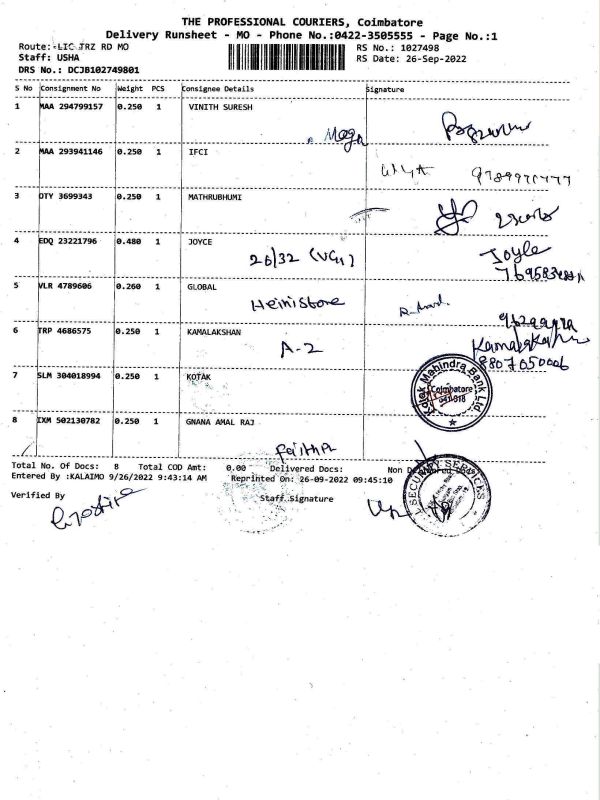 THE PROFESSIONAL COURIERS, Coimbatore
Delivery Runsheet - MO - Phone No.:0422-3505555 - Page No.:1
Route: LIC TRZ RD MO
RS No.: 1027498
Staff: USHA
RS Date: 26-Sep-2022
DRS No.: DCJB102749801
S No Consignment No Weight PCS Consignee Details Signature
1 MAA 294799157 0.250 1 VINITH SURESH
2 MAA 293941146 0.250 1 IFCI
3 DTY 3699343 0.250 1 MATHRUBHUMI
4 EDQ 23221796 0.480 1 JOYCE
26/32
5 VLR 4789606 0.260 1 GLOBAL
6 TRP 4686575 0.250 1 KAMALAKSHAN
A-2
8807050006
7 SLM 304018994 0.250 1 KOTAK
Kotak Mahindra Bank Ltd.
Coimbatore
641 018
8 IXM 502130782 0.250 1 GNANA AMAL RAJ
Total No. Of Docs: 8 Total COD Amt: 0.00 Delivered Docs: Non
Entered By :KALAIMO 9/26/2022 9:43:14 AM Reprinted On: 26-09-2022 09:45:10
Verified By
Staff Signature
SECURITY SERVICES